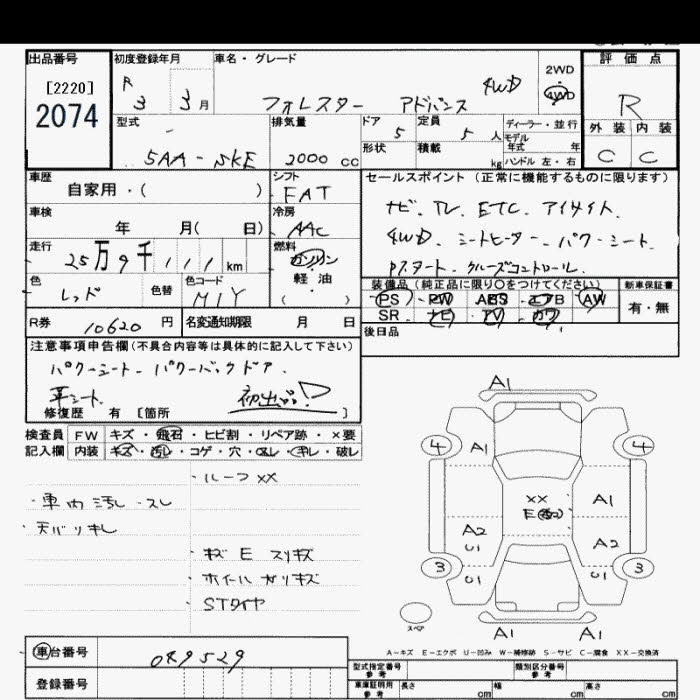 出品番号 初度登録年月 車名・グレード 評価点
[2220] R 3 3月 フォレスター アドバンス 4WD 2WD 4WD R
2074
型式 排気量 ドア 定員 ディーラー・並行 外装 内装
5AA-SKE 2000 cc 5 5人 モデル年式 年 C C
形状 積載 kg ハンドル 左・右
車歴 シフト セールスポイント (正常に機能するものに限ります)
自家用・( ) FAT
ナビ、TV、ETC、アイサイト、
車検 冷房
年 月( 日) AAC
4WD、シートヒーター、パワーシート、
走行 燃料
25万9千111km ガソリン
Pスタート、クルーズコントロール、
軽・油
( )
色 色替 色コード 装備品 (純正品に限り〇をつけてください) 新車保証書
レッド M1Y PS PW ABS エアB AW 有・無
SR ナビ TV カワ
R券 10620 円 名変通知期限 月 日 後日品
注意事項申告欄 (不具合内容等は具体的に記入して下さい)
パワーシート、パワーバックドア、
革シート、 初出品!?
修復歴 有 [箇所 ]
検査員 FW キズ・飛石・ヒビ割・リペア跡・×要
記入欄 内装 キズ・汚レ・コゲ・穴・スレ・キレ・破レ
・ルーフXX
・車内汚レ・スレ
・天バリキレ
・キズ E スリキズ
・ホイールガリキズ
・STタイヤ
A1
4 A1 4
XX A1
E
A2 A2
U1 U1
3 U1 U1 3
スペア A1 A1
A-キズ E-エクボ U-凹み W-補修跡 S-サビ C-腐食 XX-交換済
車台番号 049529
登録番号
型式指定番号 参考 類別区分番号 参考
車庫証明用 参考 長さ cm 幅 cm 高さ cm